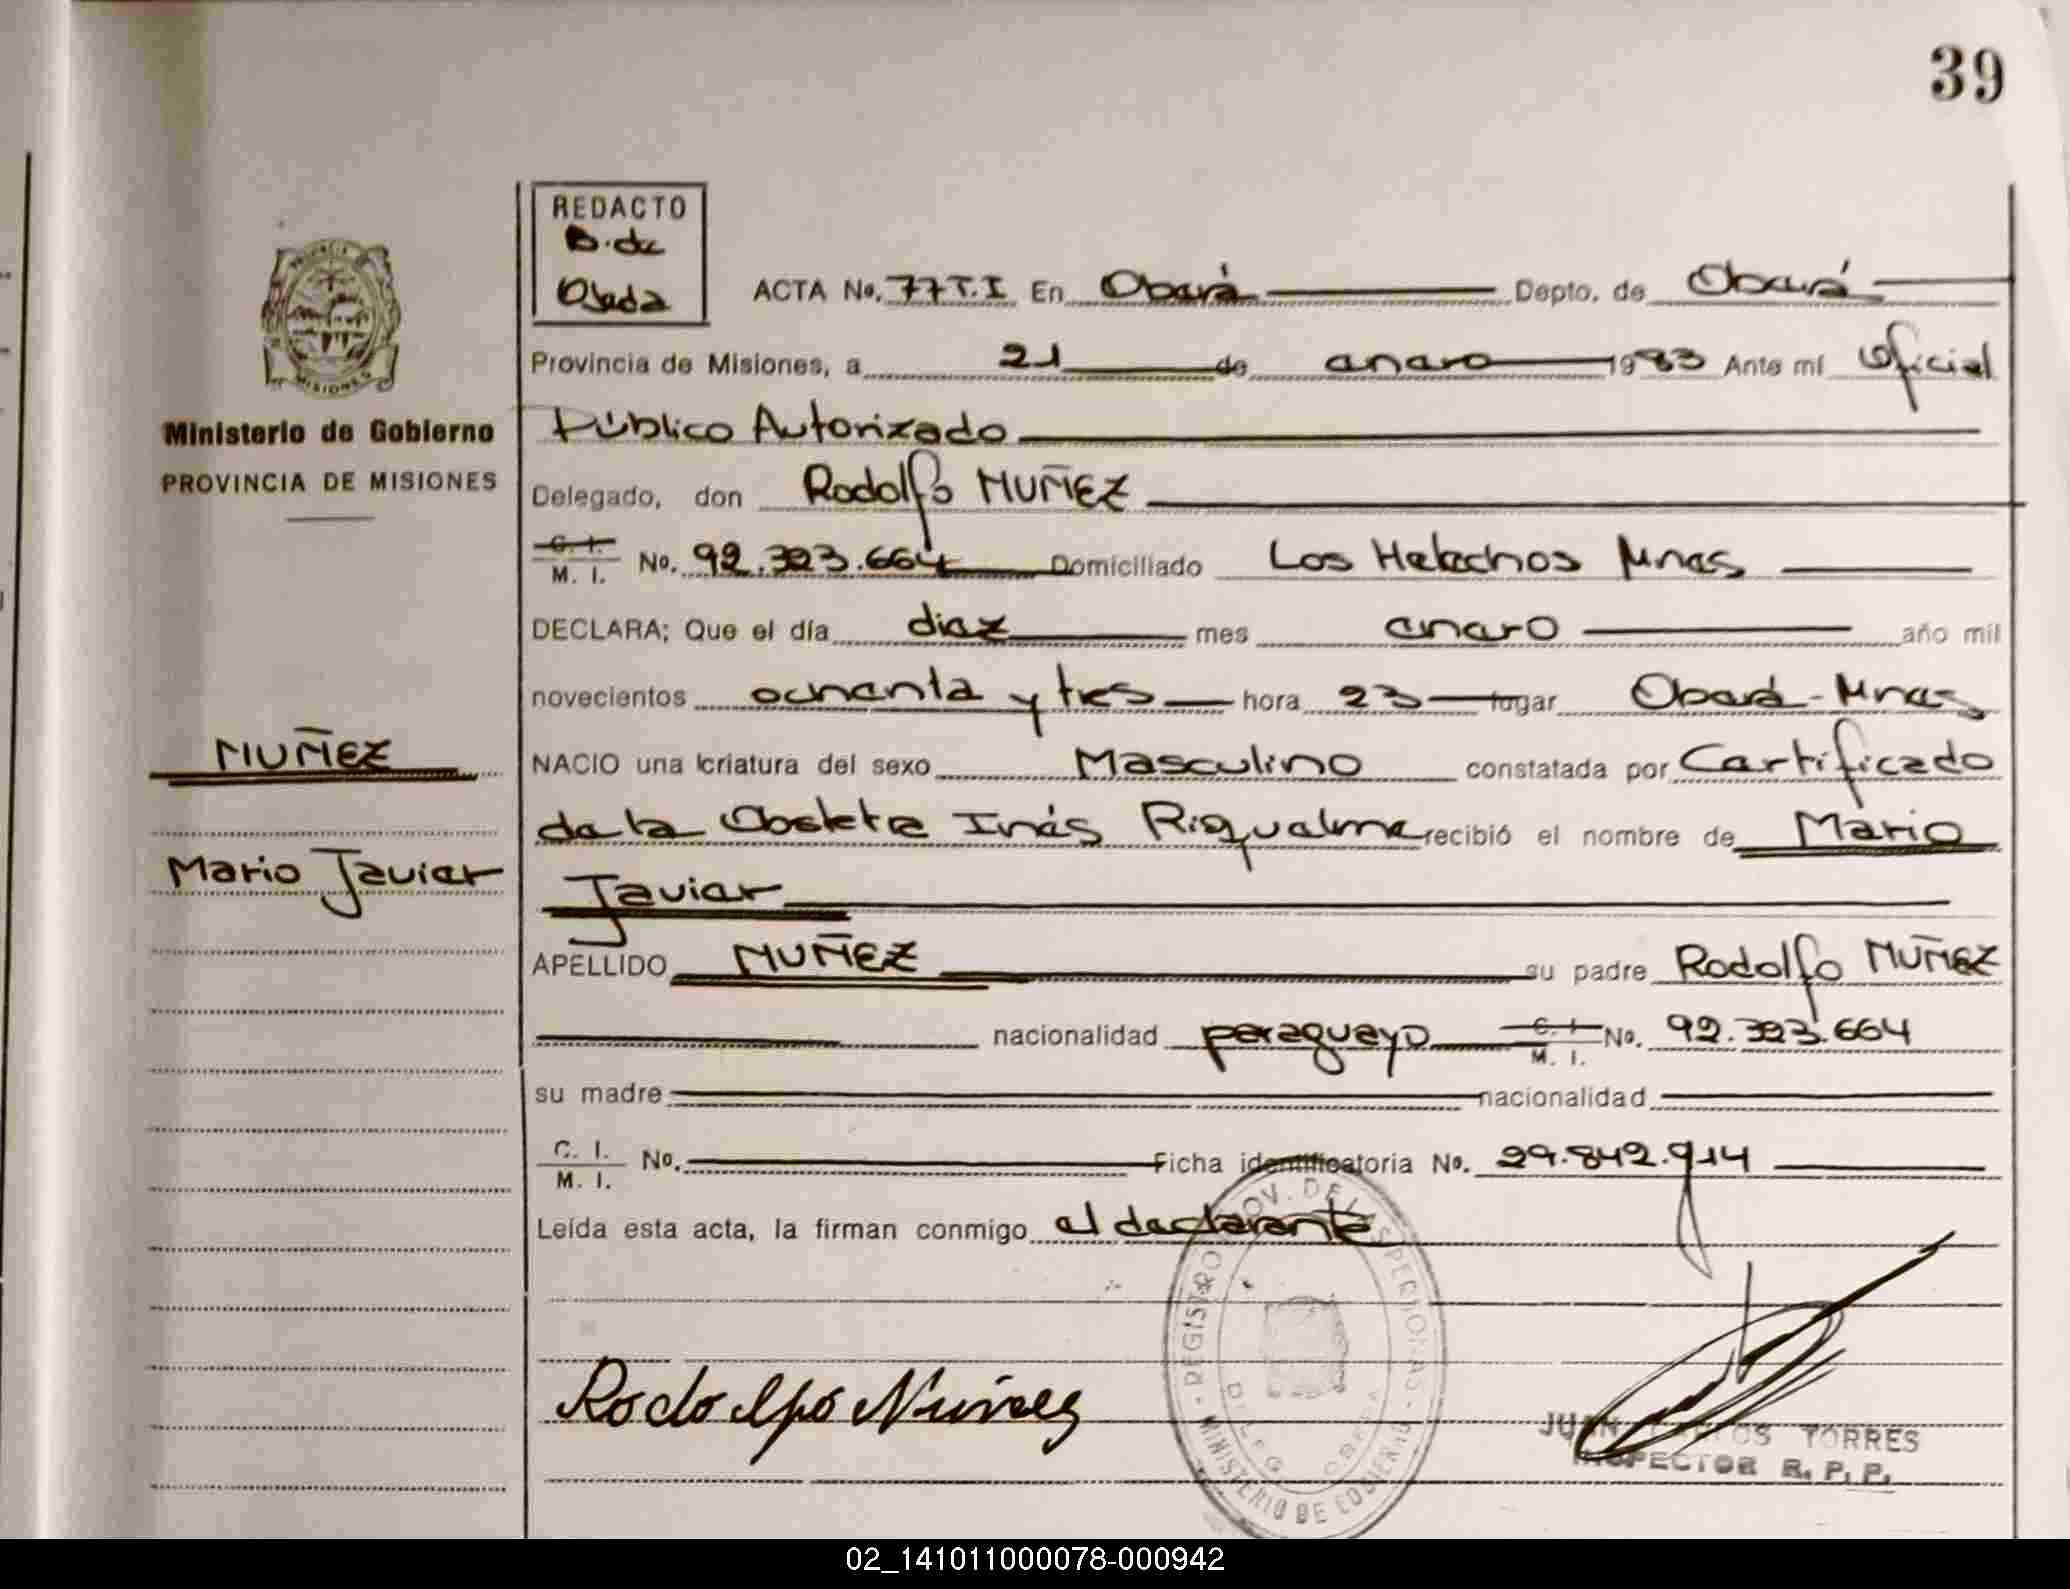 39
REDACTO
B. de
Ojeda
ACTA No. 77 T. I En Oberá Depto. de Oberá
Provincia de Misiones, a 21 de enero 1983 Ante mí Oficial
Público Autorizado
Delegado, don Rodolfo MUÑEZ
C. I.
M. I. No. 92.323.664 Domiciliado Los Helechos Mnes
DECLARA; Que el día diez mes enero año mil
novecientos ochenta y tres hora 23 lugar Oberá - Mnes
NACIO una criatura del sexo Masculino constatada por Certificado
de la Obstetra Inés Riquelme recibió el nombre de Mario
Javier
APELLIDO MUÑEZ su padre Rodolfo MUÑEZ
nacionalidad paraguayo C. I. M. I. No. 92.323.664
su madre nacionalidad
C. I.
M. I. No. Ficha identificatoria No. 29.842.914
Leída esta acta, la firman conmigo el declarante
Rodolfo Nuñez
JUAN CARLOS TORRES
INSPECTOR R. P. P.
PROVINCIA
MISIONES
Ministerio de Gobierno
PROVINCIA DE MISIONES
MUÑEZ
Mario Javier
REGISTRO PROV. DE LAS PERSONAS - MINISTERIO DE GOBIERNO
DELEG. OBERA
02_141011000078-000942